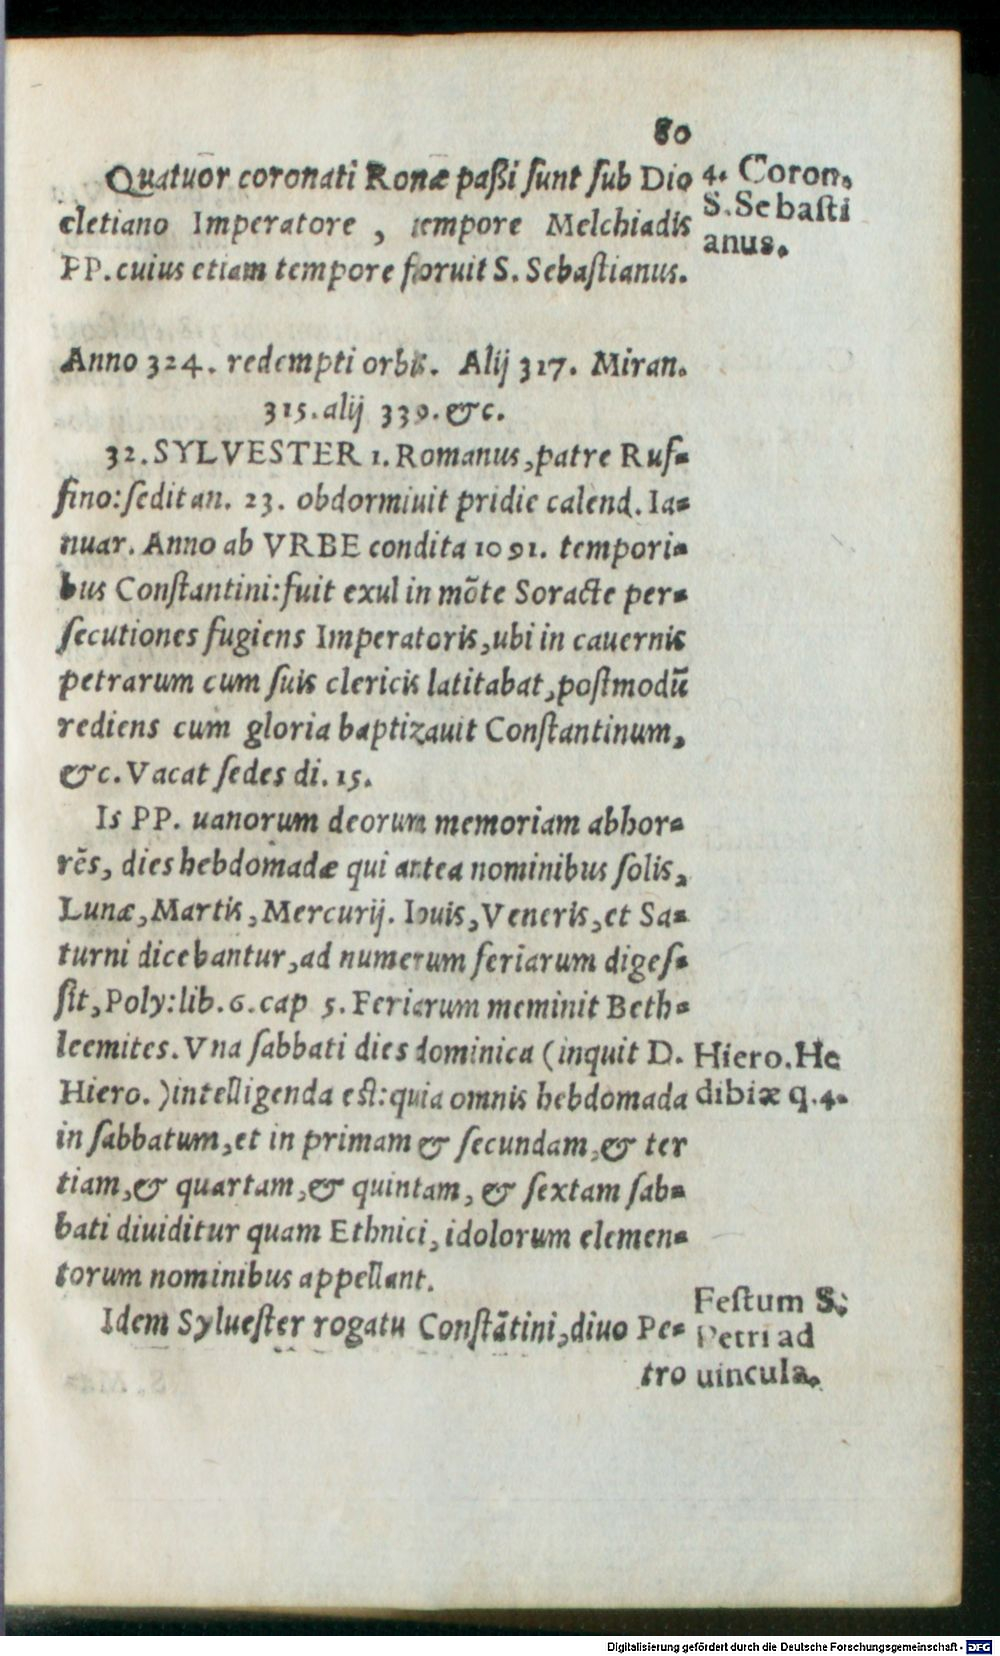 80
Quatuor coronati Ronæ paßi ſunt ſub Dio
cletiano Imperatore, tempore Melchiadis
PP. cuius etiam tempore floruit S. Sebaſtianus.
4. Coron.
S. Sebaſti
anus.
Anno 324. redempti orbis. Alij 317. Miran.
315. alij 339. &c.
32. SYLVESTER 1. Romanus, patre Ruf-
fino: ſedit an. 23. obdormiuit pridie calend. Ia-
nuar. Anno ab VRBE condita 1091. tempori-
bus Conſtantini: fuit exul in mōte Soracte per-
ſecutiones fugiens Imperatoris, ubi in cauernis
petrarum cum ſuis clericis latitabat, poſtmodū
rediens cum gloria baptizauit Conſtantinum,
&c. Vacat ſedes di. 15.
Is PP. uanorum deorum memoriam abhor-
rēs, dies hebdomadæ qui antea nominibus ſolis,
Lunæ, Martis, Mercurij. Iouis, Veneris, et Sa-
turni dicebantur, ad numerum feriarum digeſ-
ſit, Poly: lib. 6. cap 5. Feriarum meminit Beth-
leemites. Vna ſabbati dies dominica (inquit D.
Hiero.) intelligenda eſt: quia omnis hebdomada
in ſabbatum, et in primam & ſecundam, & ter
tiam, & quartam, & quintam, & ſextam ſab-
bati diuiditur quam Ethnici, idolorum elemen-
torum nominibus appellant.
Hiero. He
dibiæ q. 4.
Idem Sylueſter rogatu Conſtātini, diuo Pe-
tro
Feſtum S.
Petri ad
uincula.
Digitalisierung gefördert durch die Deutsche Forschungsgemeinschaft - DFG